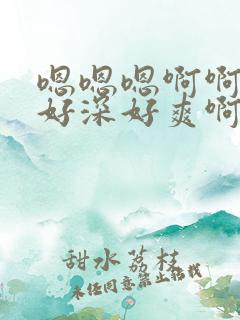 嗯嗯嗯啊啊
好深好爽啊
甜水荔枝
未经同意禁止转载